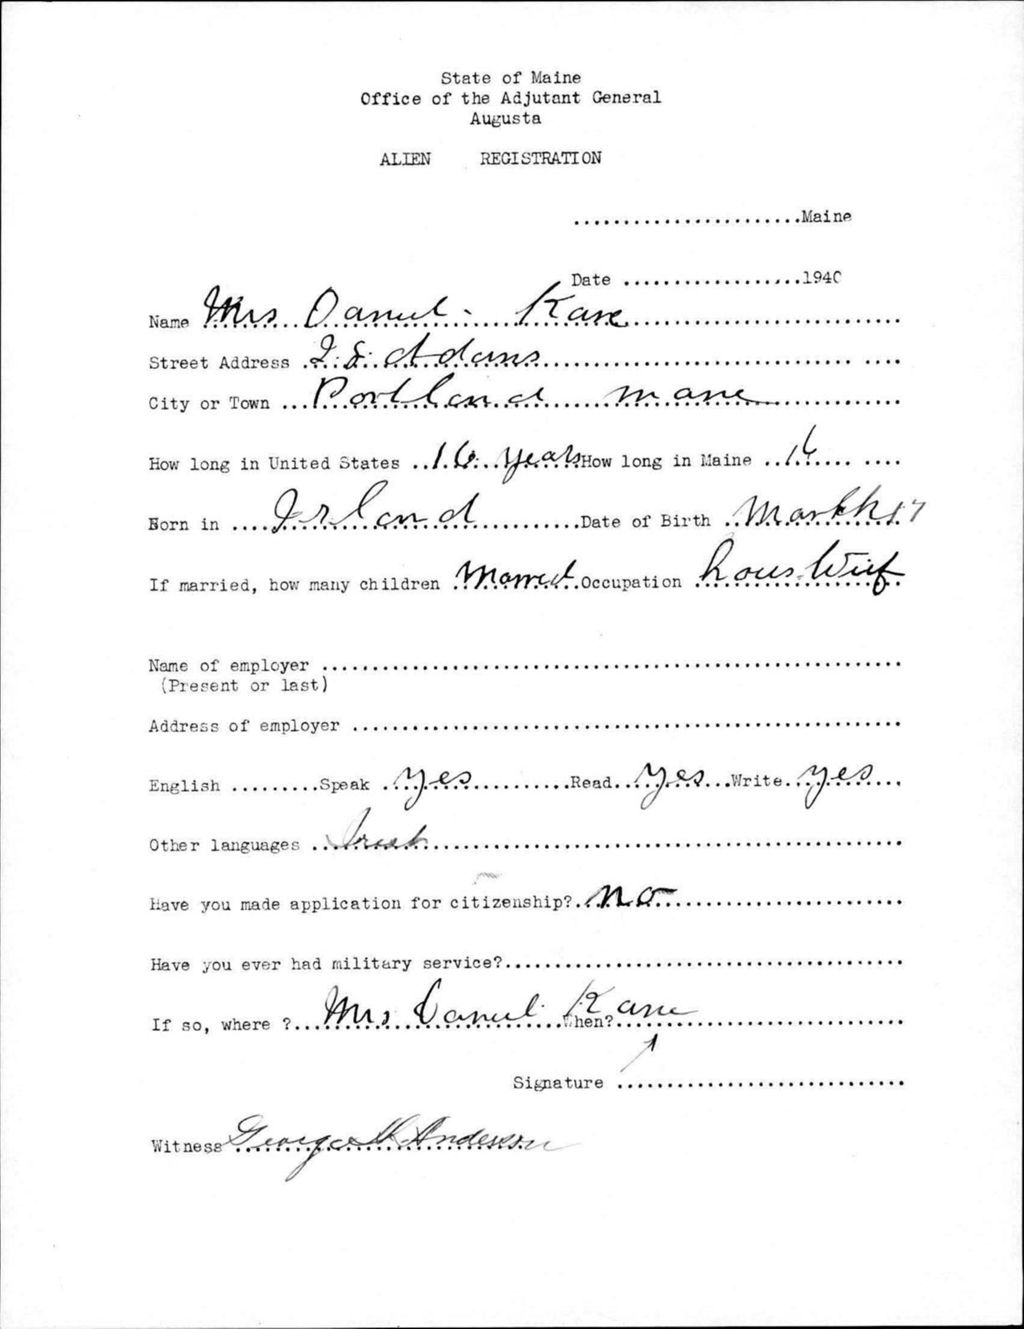 State of Maine
Office of the Adjutant General
Augusta
ALIEN REGISTRATION
.......................Maine
Date ..................1940
Name Mrs Danul - Kane
Street Address Adams
City or Town Portland mane
How long in United States 16 years How long in Maine 16
Born in Irland Date of Birth 17
If married, how many children Marred Occupation hous Wif
Name of employer
(Present or last)
Address of employer
English Speak yes Read yes Write yes
Other languages Irish
Have you made application for citizenship? no
Have you ever had military service?
If so, where ? Mrs Danul Kane When?
Signature
Witness George Anderson